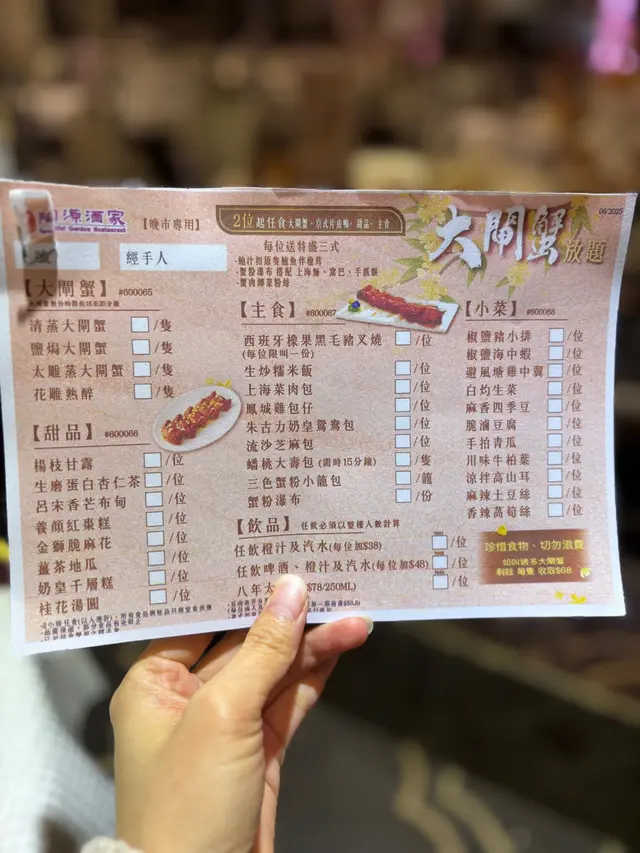 酒家
Garden Restaurant
【晚市專用】
2位起任食大閘蟹、京式片皮鴨、甜品、主食
大閘蟹放題
08/2025
經手人
每位送特盛三式
·蟹粉瀑布 搭配 上海麵、窩巴、手抓餅
·蟹肉椰菜粉絲
【大閘蟹】 #600065
清蒸大閘蟹 /隻
鹽焗大閘蟹 /隻
太雕蒸大閘蟹 /隻
花雕熟醉 /隻
【甜品】 #600066
楊枝甘露 /位
生磨蛋白杏仁茶 /位
呂宋香芒布甸 /位
養顏紅棗糕 /位
金獅脆麻花 /位
薑茶地瓜 /位
奶皇千層糕 /位
桂花湯圓 /位
【主食】 #600067
西班牙橡果黑毛豬叉燒 /位
(每位限叫一份)
生炒糯米飯 /位
上海菜肉包 /位
鳳城雞包仔 /位
朱古力奶皇鴛鴦包 /位
流沙芝麻包 /位
蟠桃大壽包 (需時15分鐘) /隻
三色蟹粉小籠包 /籠
蟹粉瀑布 /份
【飲品】 任飲必須以整檯人數計算
任飲橙汁及汽水(每位加$38) /位
任飲啤酒、橙汁及汽水(每位加$48) /位
八年太 $78/250ML) /位
【小菜】 #600068
椒鹽豬小排 /位
椒鹽海中蝦 /位
避風塘雞中翼 /位
白灼生菜 /位
麻香四季豆 /位
脆滷豆腐 /位
手拍青瓜 /位
川味牛柏葉 /位
涼拌高山耳 /位
麻辣土豆絲 /位
香辣萵筍絲 /位
珍惜食物、切勿浪費
如叫過多大閘蟹
剩餘 每隻 收取$68